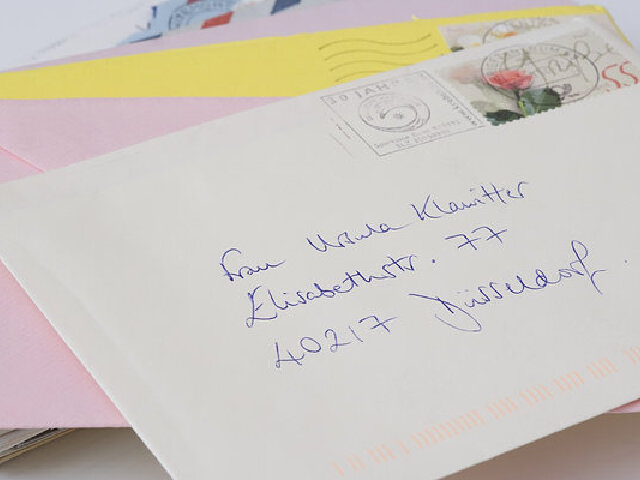 10 JAHRE
55
Frau Ursula Klawitter
Elisabethstr. 77
40217 Düsseldorf